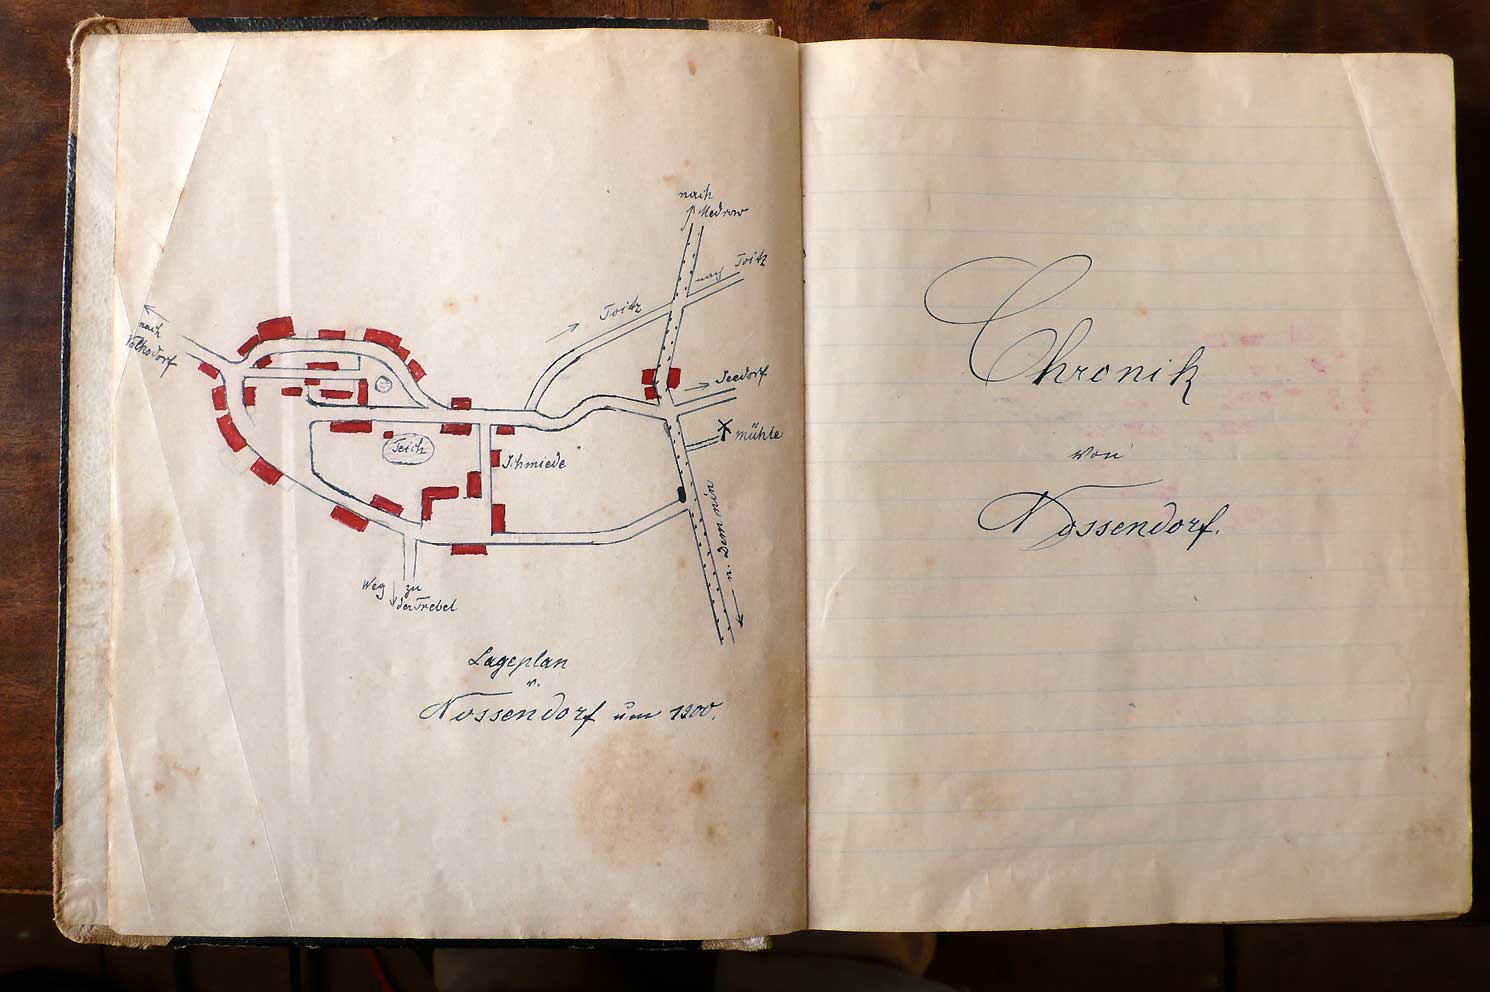 nach
Medrow
nach Toitz
Toitz
nach
Volksdorf
Seedorf
mühle
Teich
Schmiede
n. Demmin
Weg zu
der Trebel
Lageplan
v.
Nossendorf um 1900.
Chronik
von
Nossendorf.